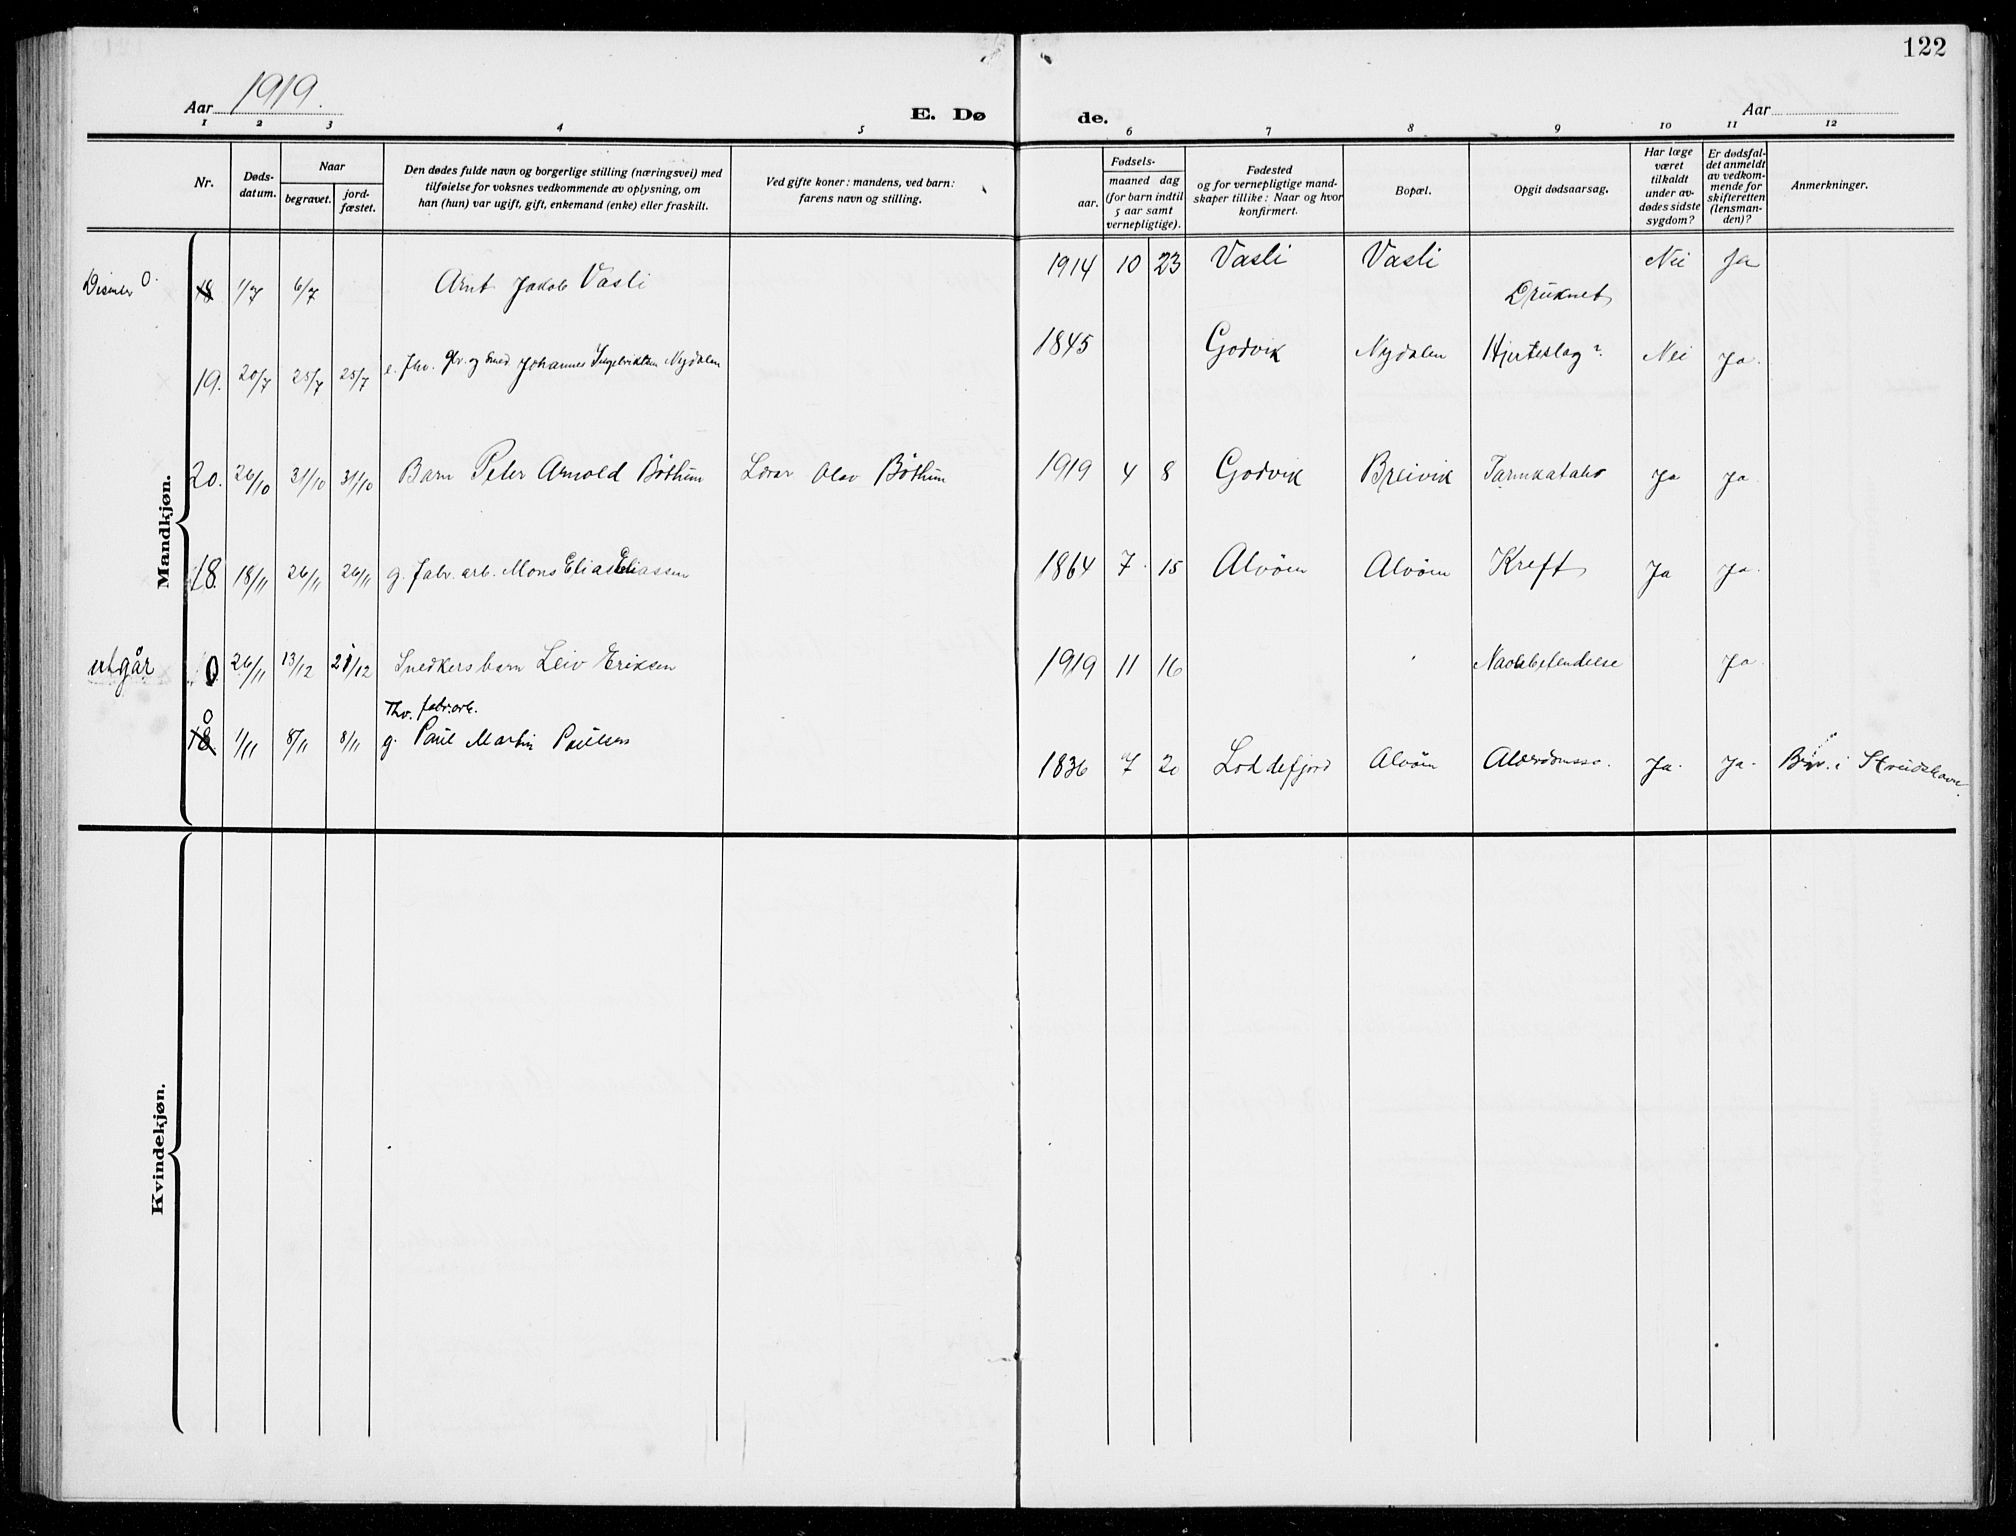 122
Aar 1919.
E. Dø de.
Aar
1 2 3 4 5 6 7 8 9 10 11 12
Nr.
Døds-
datum.
Naar
begravet.
jord-
fæstet.
Den dødes fulde navn og borgerlige stilling (næringsvei) med
tilføielse for voksnes vedkommende av oplysning, om
han (hun) var ugift, gift, enkemand (enke) eller fraskilt.
Ved gifte koner: mandens, ved barn:
farens navn og stilling.
Fødsels-
aar.
maaned dag
(for barn indtil
5 aar samt
vernepligtige).
Fødested
og for vernepligtige mand-
skaper tillike: Naar og hvor
konfirmert.
Bopæl.
Opgit dødsaarsag.
Har læge
været
tilkaldt
under av-
dødes sidste
sygdom?
Er dødsfal-
det anmeldt
av vedkom-
mende for
skifteretten
(lensman-
den)?
Anmerkninger.
Mandkjøn.
O. 18 1/7 6/7 Arnt Jakob Vasli 1914 10 23 Vasli Vasli Druknet Nei Ja
19. 20/7 25/7 25/7 e. fhv. gbr. og smed Johannes Ingebriktsen Nydalen 1845 Godvik Nydalen Hjerteslag? Nei Ja.
20. 26/10 31/10 31/10 Barn Peter Arnold Bøthun Lærer Olav Bøthun 1919 4 8 Godvik Breivik Tarmkatahr Ja Ja.
18. 18/11 26/11 26/11 g. fabr. arb. Mons Elias Eliassen 1864 7. 15 Alvøen Alvøen Kreft Ja Ja.
utgår 0 26/11 13/12 21/12 Snedkersbarn Leiv Eriksen 1919 11 16 Navlebetendelse Ja.
Fhv. fabr.arb.
0 18 1/11 8/11 8/11 g. Paul Martin Paulsen 1836 7 20 Loddefjord Alvøen Alderdomssv. Ja. Ja. i
Kvindekjøn.